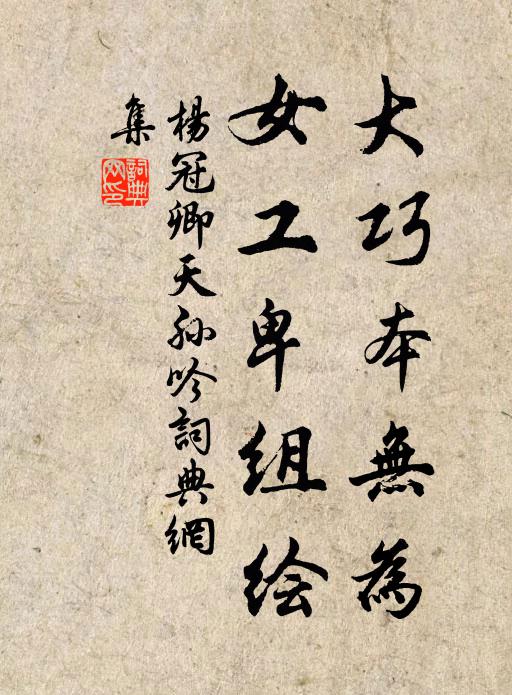 大巧本無為
女工卑组绘
楊冠卿天孫吟詞典網
集
詞典
网印